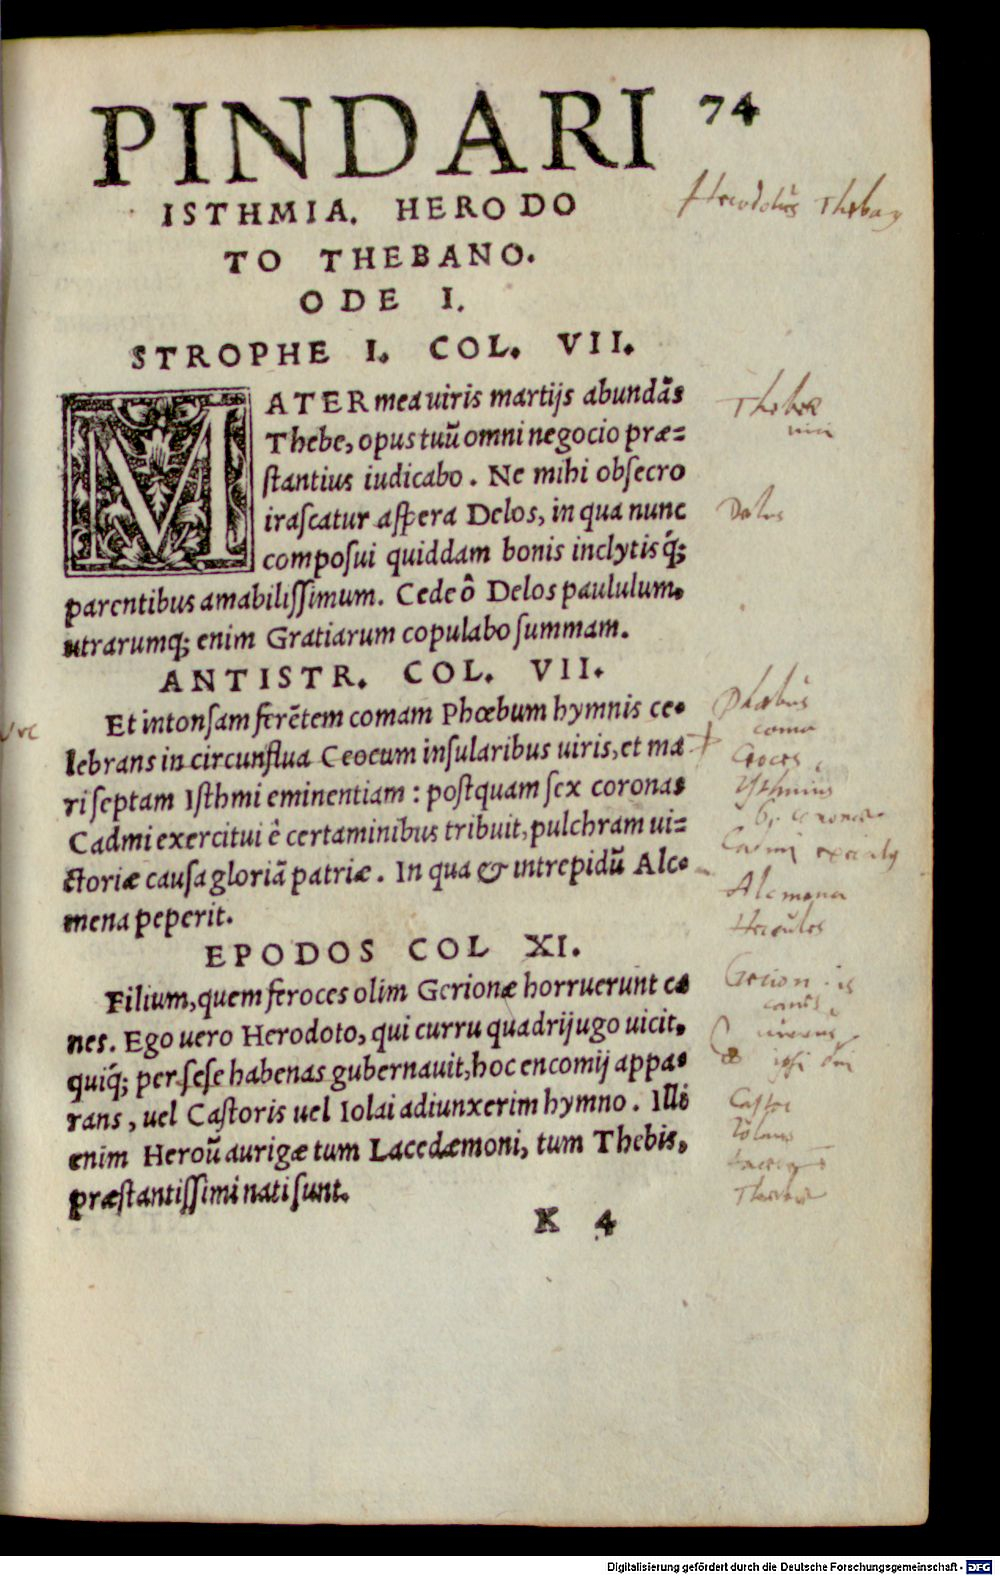 PINDARI 74
ISTHMIA. HERODO
TO THEBANO.
ODE I.
STROPHE I. COL. VII.
MATER mea uiris martijs abundãs
Thebe, opus tuũ omni negocio præ=
ſtantius iudicabo. Ne mihi obſecro
iraſcatur aſpera Delos, in qua nunc
compoſui quiddam bonis inclytisq́;
parentibus amabiliſſimum. Cede ô Delos paululum.
utrarumq; enim Gratiarum copulabo ſummam.
ANTISTR. COL. VII.
Et intonſam ferẽtem comam Phœbum hymnis ce-
lebrans in circunflua Ceocum inſularibus uiris, et ma
ri ſeptam Iſthmi eminentiam: poſtquam ſex coronas
Cadmi exercitui è certaminibus tribuit, pulchram ui=
ctoriæ cauſa gloriã patriæ. In qua & intrepidũ Alc-
mena peperit.
EPODOS COL XI.
Filium, quem feroces olim Gerionæ horruerunt ca
nes. Ego uero Herodoto, qui curru quadrijugo uicit,
quiq́; per ſeſe habenas gubernauit, hoc encomij appa-
rans, uel Caſtoris uel Iolai adiunxerim hymno. Illi
enim Heroũ aurigæ tum Lacedæmoni, tum Thebis,
præſtantiſſimi nati ſunt.
K 4
Herodotus
Delos
Phœbus
coma
Alcmena
Hercules
Gerion is
canes
Castor
Iolaus
Digitalisierung gefördert durch die Deutsche Forschungsgemeinschaft - DFG